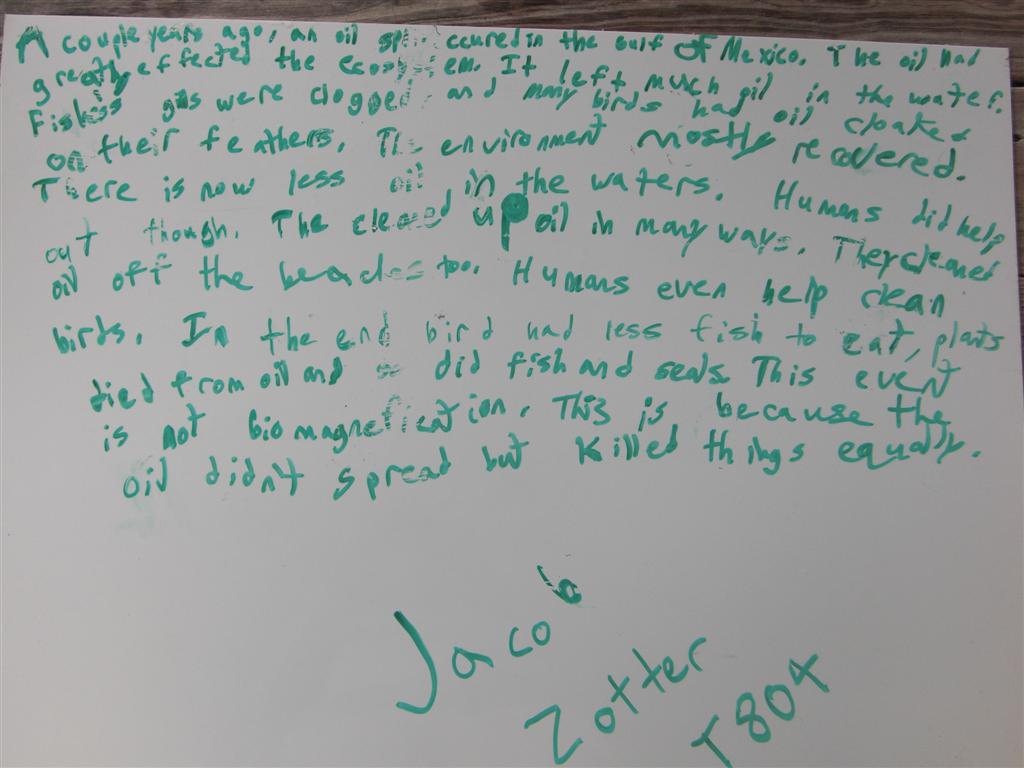 A couple years ago, an oil spill occured in the Gulf of Mexico. The oil had
greatly effected the ecosystem. It left much oil in the water.
Fishes gills were clogged and many birds had oil cloaked
on their feathers. The environment mostly recovered.
There is now less oil in the waters. Humans did help
out though. The cleaned up oil in many ways. They cleaned
oil off the beaches too. Humans even help clean
birds. In the end bird had less fish to eat, plants
died from oil and so did fish and seals. This event
is not biomagnefication. This is because the
oil didn't spread but killed things equally.
Jacob
Zotter
T804